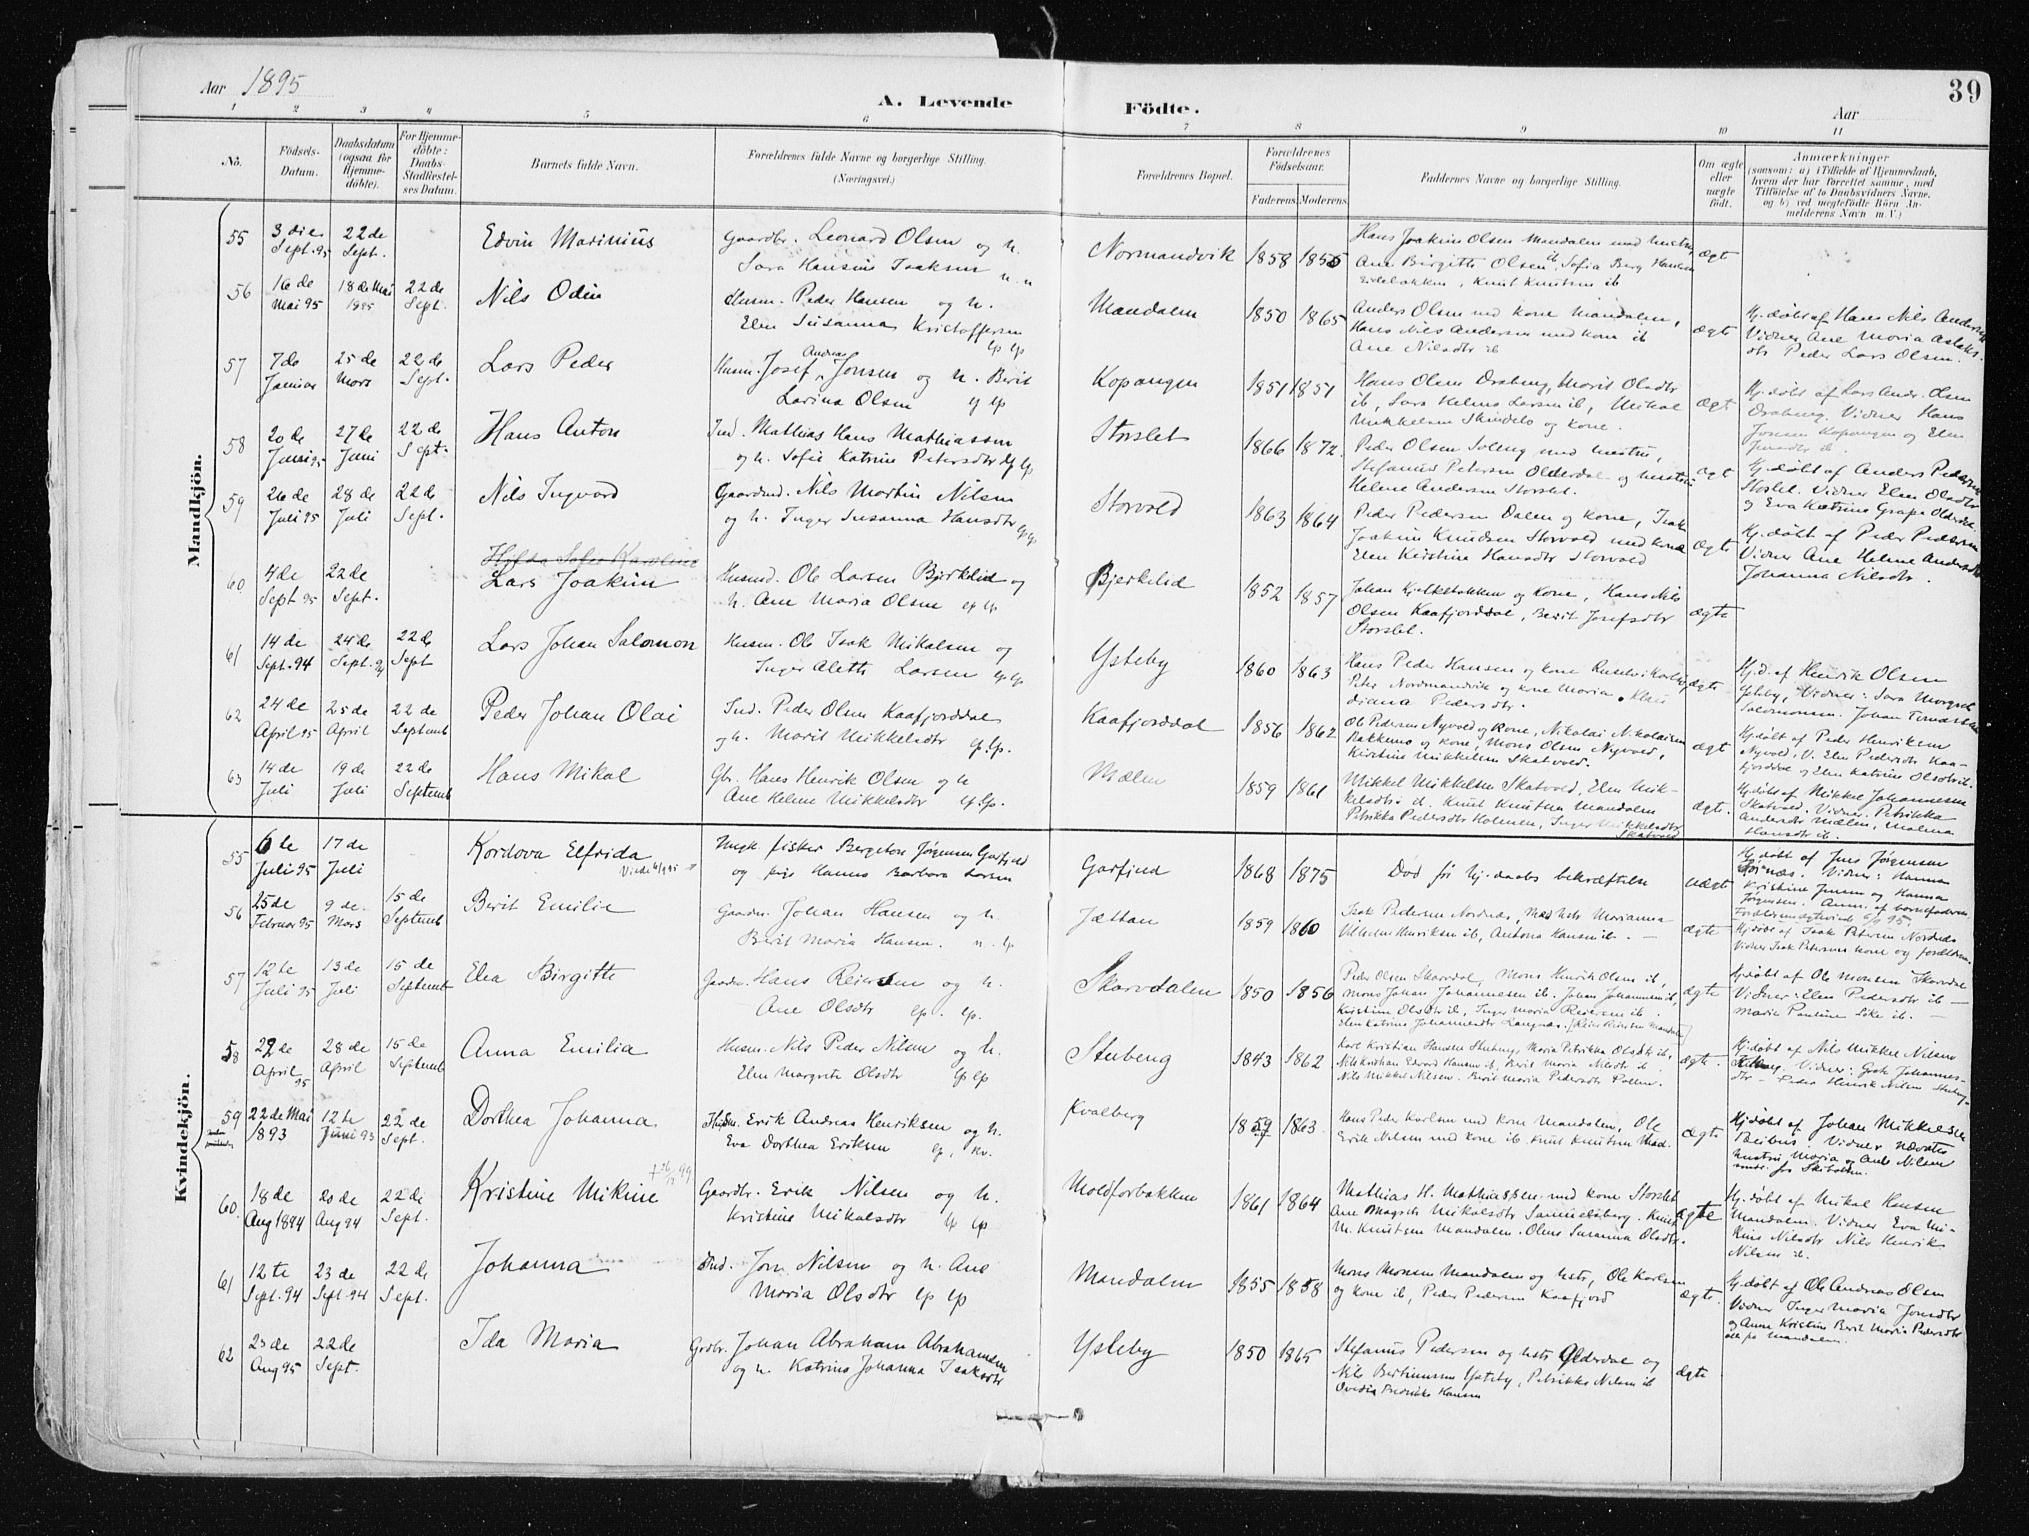 39
Aar 1895
A. Levende Födte.
Aar
1 2 3 4 5 6 7 8 9 10 11
No.
Födsels-Datum.
Daabsdatum (ogsaa for Hjemme-döbte).
For Hjemme-döbte: Daabs-Stadfæstel-ses Datum.
Barnets fulde Navn.
Forældrenes fulde Navne og borgerlige Stilling. (Næringsvei.)
Forældrenes Bopæl.
Forældrenes Födselsaar.
Faderens. Moderens.
Faddernes Navne og borgerlige Stilling.
Om ægte eller uægte födt.
Anmærkninger
(saasom: a) i Tilfælde af Hjemmedaab, hvem der har forrettet samme, med Tilföielse af to Daabsvidners Navne, og b) ved uægtefödte Börn An-melderens Navn m. V.)
Mandkjön.
55 3die Sept. 95 22de Sept. Edvin Marinius
Gaardbr. Leonard Olsen og h.
Sara Hansine Isaksen
Normandvik 1858 1855
Hans Joakim Olsen Mandalen med hustru,
Ane Birgitte Olsen ib, Sofia Berg Hansen
Knut Knutsen ib
ægt
56 16de Mai 95 18de Mai 1895 22de Sept. Nils Odin
Husm. Peder Hansen og h.
Elen Susanna Kristoffersen lp lp
Mandalen 1850 1865
Anders Olsen med kone Mandalen,
Hans Nils Andersen med kone ib
Ane Nilsdtr ib
ægt
Hj. döbt af Hans Nils Andersen
Vidner Ane Maria Aslaks-
dtr Peder Lars Olsen.
57 7de Januar 25de Mars 22de Sept. Lars Peder
Husm. Josef Andreas Jonsen og h. Berit
Larina Olsen lp lp
Kopangen 1851 1851
Hans Olsen Draberg, Marit Olsdtr
ib, Sara Helene Larsen ib, Mikal
Mikkelsen Skindelo og kone.
ægt
Hj. döbt af Lars Andr. Olsen
Draberg. Vidner Hans
Jonsen Kopangen og Elen
Jonsdtr ib.
58 20de Juni 95 27de Juni 22de Sept. Hans Anton
Ind. Mathias Hans Mathiassen
og h. Sofie Katrine Petersdtr lp lp
Storslet 1866 1872
Peder Olsen Soleng med hustru,
Stefanus Petersen Olderdal og hustru
Helene Andersen Storslet.
ægt
Hj. döbt af Anders Pedersen
Storslet. Vidner Elen Olsdtr
og Eva Katrine Grape Olderdal
59 26de Juli 95 28de Juli 22de Sept. Nils Ingvard
Gaardmd. Nils Martin Nilsen
og h. Inger Susanna Hansdtr lp lp
Storvold 1863 1864
Peder Pedersen Dalen og kone, Isak
Joakim Knudsen Storvold med kone
Elen Kirstine Hansdtr Storvold
ægte
Hj. döbt af Peder Pedersen
Vidner Ane Helene Andersdtr
Johanna Nilsdtr.
60 4de Sept 95 22de Sept. Hilda Sofie Karoline
Lars Joakim
Husmd. Ole Larsen Bjerklid og
h. Ane Maria Olsen lp lp
Bjerkelid 1852 1857
Johan Kjelkebakken og kone, Hans Nils
Olsen Kaafjorddal, Berit Josefsdtr
Storslet.
ægte
61 14de Sept. 94 24de Sept. 94 22de Sept Lars Johan Salomon
Husm. Ole Isak Mikalsen og
Inger Aletta Larsen lp lp
Ysteby 1860 1863
Hans Peder Hansen og kone
Peter Nordmandvik og kone Maria
diana Pedersdtr.
ægte
Hj. d. af Henrik Olsen
Ysteby, Vidner: Sara Margret
Salomonsen. Johan
62 24de April 95 25de April 22de Septemb Peder Johan Olai
Ind. Peder Olsen Kaafjorddal
og h. Marit Mikkelsdtr lp. lp.
Kaafjorddal 1856 1862
Ole Pedersen Nyvold og kone, Nikolai Nikolaisen
Bakkemo og kone, Mons Olsen Nyvold,
Kirstine Mikkelsen Skatvold.
ægt
Hj. döbt af Peder Henriksen
Nyvold, V. Elen Pedersdtr Kaa-
fjorddal og Elen Katrine Olsdtr ib.
63 14de Juli 19de Juli 22de Septemb Hans Mikal
Gbr. Hans Henrik Olsen og h
Ane Helene Mikkelsdtr lp. lp.
Mælen 1859 1861
Mikkel Mikkelsen Skatvold, Elen Mik-
kelsdtr ib. Knut Knutsen Mandalen
Petrikka Pedersdtr Holmen, Inger Mikkelsdtr Skatvold
ægte.
Hj. döbt af Mikkel Johannesen
Skatvold. Vidner. Petrikka
Andersdtr Mælen, Malena
Hansdtr ib.
Kvindekjön.
55 6te Juli 95 17de Juli Kordova Elfrida
Ungk. fisker Bergeton Jörgensen Garfjeld
og pige Hanna Barbara Larsen
Garfjud 1868 1875
Död för hj. daabs bekræftelse
uægt
Hj. döbt af Jens Jörgensen
Vidner: Hanna
Kristine Jensen og Hanna
Jörgensen. Anm. af barnefaderen
56 25de Februar 95 9de Mars 15de Septemb Berit Emilie
Gaardm. Johan Hansen og h.
Berit Maria Hansen. n. lp
Jættan 1859 1860
Isak Pedersen Nordnæs, med hstr Marianna
Vilhelm Henriksen ib, Antona Hansen ib. —
ægte
Hj. döbt af Isak Petersen Nordnæs
Vidner Isak Petersens kone og forældrene
57 12te Juli 95 13de Juli 15de Septemb Elea Birgitte
Gaardm. Hans Reiersen og h.
Ane Olsdtr lp. lp.
Skarvdalen 1850 1856
Peder Olsen Skarvdal, Mons Henrik Olsen ib,
Mons Johan Johannesen ib. Johan Johannesen ib,
Kristine Olsdtr ib, Inger Maria Reiersen ib.
Elen Katrine Johannesdtr Langnæs. [Reier Reiersen Mandalen]
ægte
Hj. döbt af Ole Monsen Skarvdal
Vidner: Elen Pedersdtr ib —
Marie Pauline Like ib. —
58 22de April 95 28de April 15de Septemb Anna Emilia
Husm. Nils Peder Nilsen og h.
Elen Margrete Olsdtr lp lp
Stubeng 1843 1862
Karl Kristian Hansen Stubeng, Maria Petrikka Olsdtr ib,
Nils Kristian Edvard Hansen ib, Berit Maria Nilsdtr ib
Nils Mikkel Nilsen. Berit Maria Pedersdtr Pollen.
ægte.
Hj. döbt af Nils Mikkel Nilsen
Vidner: Johannes-
dtr — Peder Henrik Nilsen Stubeng
59 22de Mai 1893 12te Juni 93 22de Sept. Dorthea Johanna
Husm. Erik Andreas Henriksen og h.
Eva Dorthea Eriksen lp, kv.
Kvalberg 1859 1863
Hans Peder Karlsen med kone Mandalen, Ole
Erik Nilsen med kone ib. Knut Knutsen Mad.
ægte
Hj. döbt af Johan Mikkelsen
Vidner nævntes
hustru Maria og Ane Nilsen
60 18de Aug 1894 20de Aug 94 22de Sept. Kristine Mikine
Gaardbr. Erik Nilsen og h.
Kristine Mikalsdtr lp lp
Moldforbakken 1861 1864
Mathias H. Mathiassen med kone Storslet
Ane Magret Mikalsdtr Samuelsberg. Knut
M. Knutsen Mandalen. Oline Susanna Olsdtr.
ægte
Hj. döbt af Mikal Hansen
Mandalen. Vidner Eva Mi-
kine Nilsdtr Nils Henrik
Nilsen ib.
61 12te Sept. 94 23de Sept. 94 22de Sept. Johanna
Ind. Jon Nilsen og h. Ane
Maria Olsdtr lp lp
Mandalen 1855 1858
Mons Monsen Mandalen og hstr, Ole Karlsen
og kone ib, Peder Pedersen Kaafjord
ægte.
Hj. döbt af Ole Andreas Olsen
Vidner Inger Maria Jonsdtr
og Anne Kristine Berit Maria Pedersdtr
alle paa Mandalen.
62 23de Aug 95 22de Sept. Ida Maria
Grdbr. Johan Abraham Abrahamsen
og h. Katrine Johanna Isaksdtr
Ysteby 1850 1865
Stefanus Pedersen og hstr Olderdal og
Nils Bertinussen Ysteby, Petrikke Nilsen ib
Ovedia Fredrikke Hansen
ægte